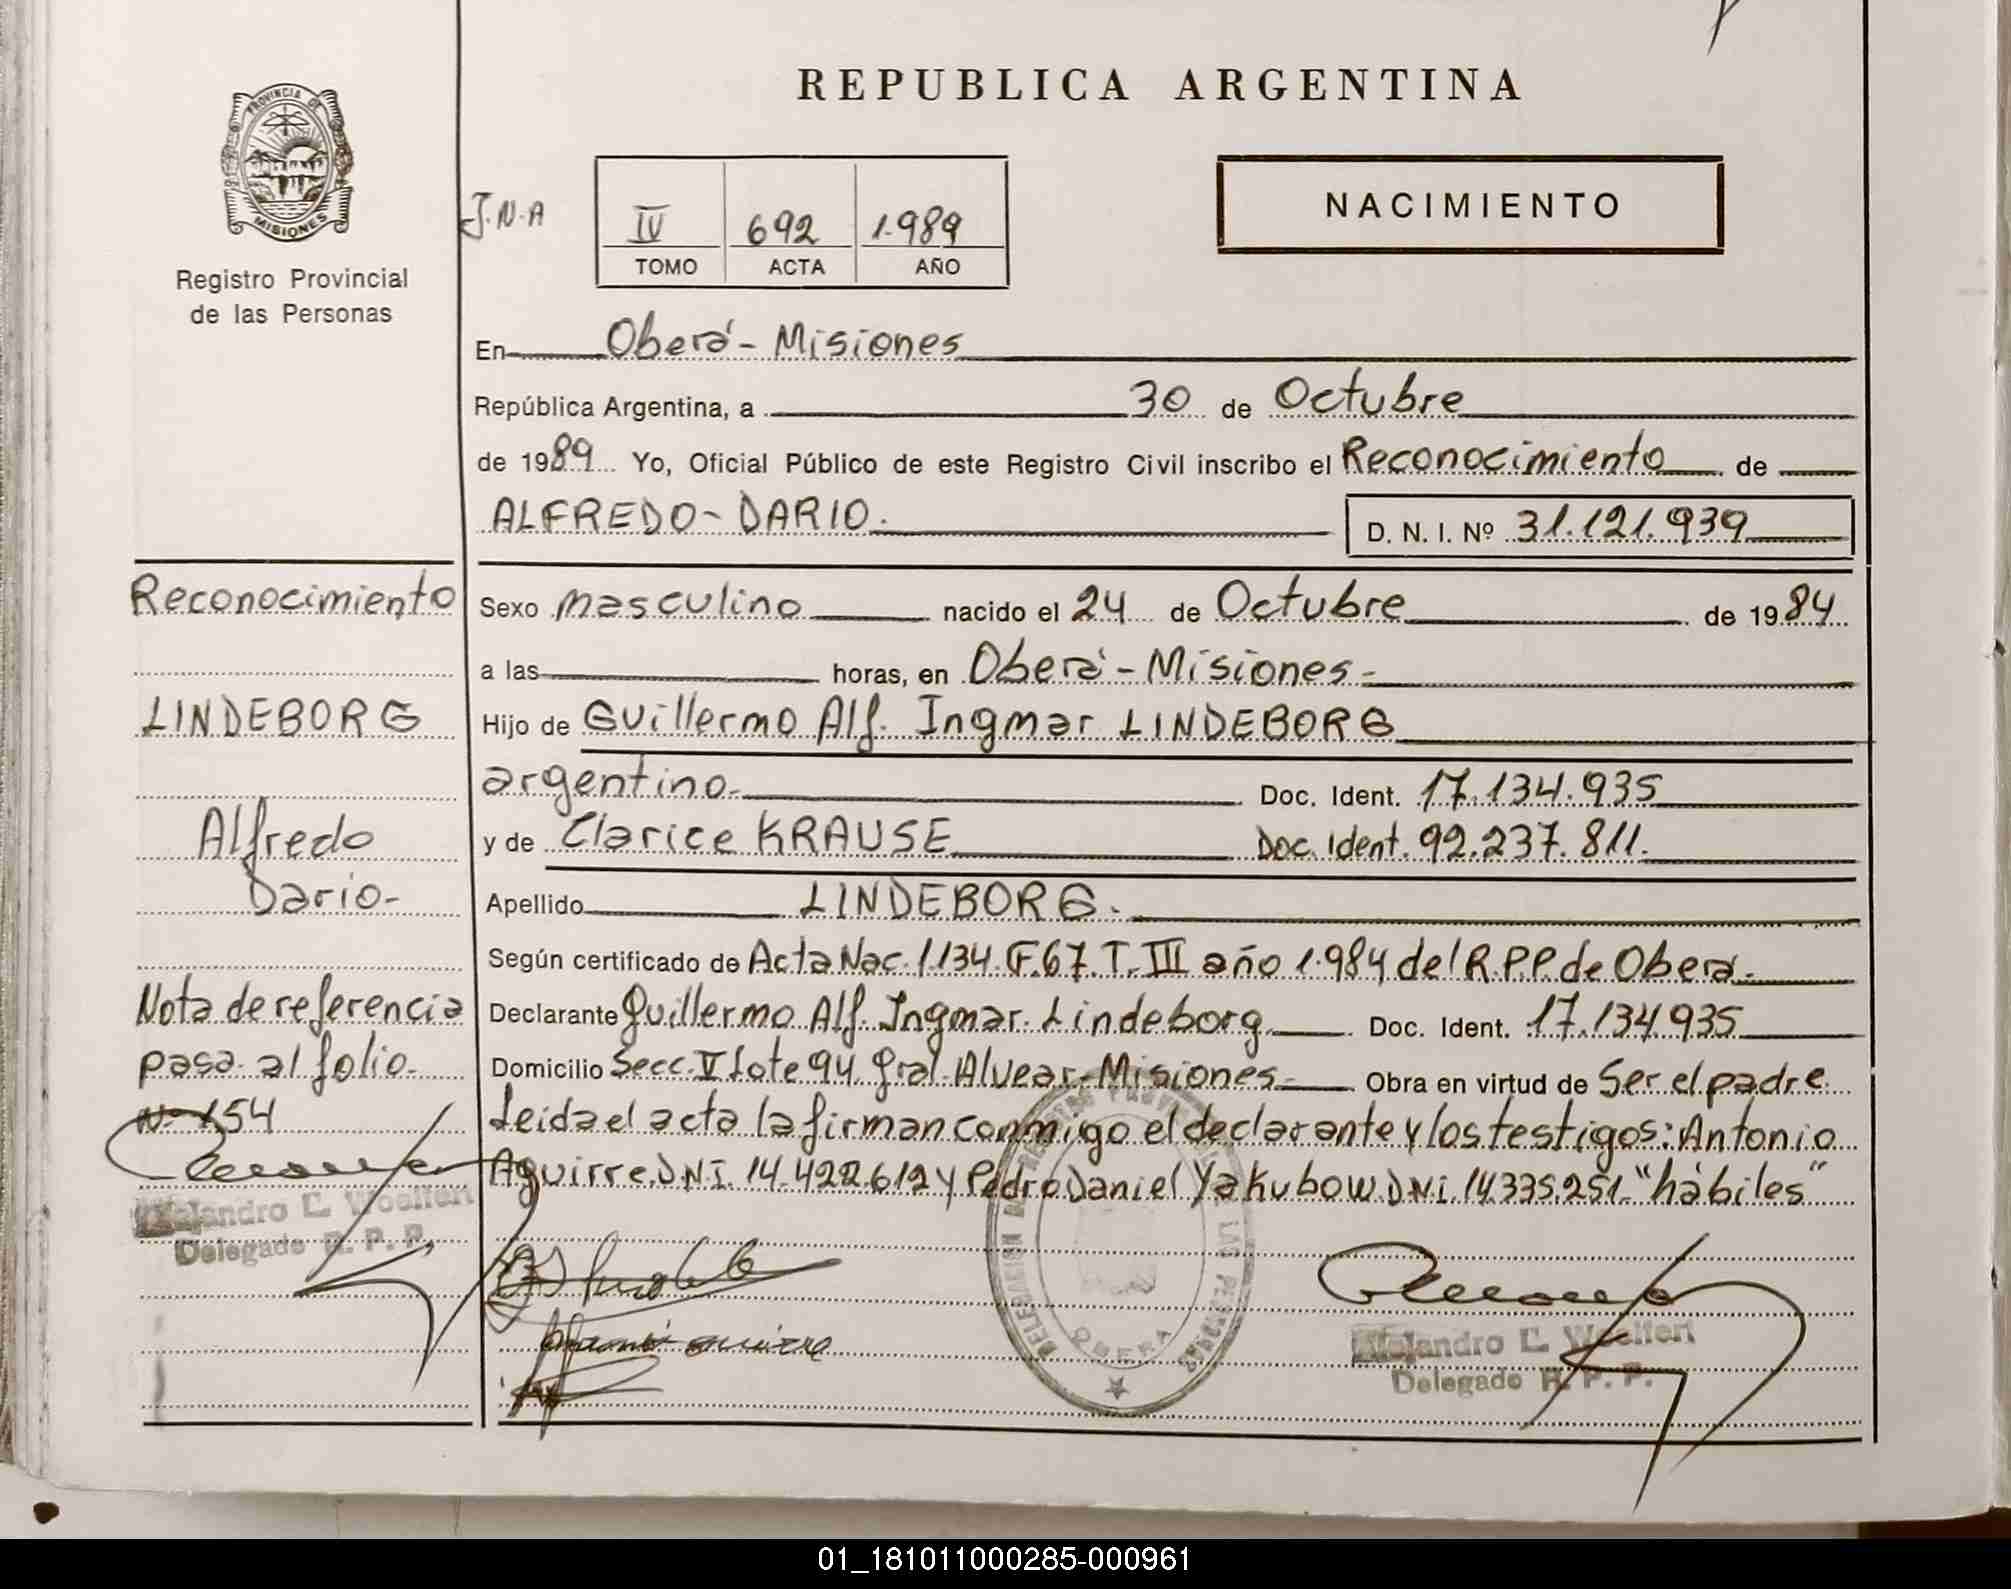 REPUBLICA ARGENTINA
PROVINCIA DE
MISIONES
Registro Provincial
de las Personas
J.N.A
IV 692 1.989
TOMO ACTA AÑO
NACIMIENTO
En Oberá - Misiones
República Argentina, a 30 de Octubre
de 1989 Yo, Oficial Público de este Registro Civil inscribo el Reconocimiento de
ALFREDO - DARIO. D. N. I. Nº 31.121.939
Sexo masculino nacido el 24 de Octubre de 1984
a las horas, en Oberá - Misiones -
Hijo de Guillermo Alf. Ingmar LINDEBORG
argentino. Doc. Ident. 17.134.935
y de Clarice KRAUSE Doc. Ident. 92.237.811.
Apellido LINDEBORG.
Según certificado de Acta Nac. 1.134. F. 67. T. III año 1.984 del R.P.P. de Oberá.
Declarante Guillermo Alf. Ingmar. Lindeborg Doc. Ident. 17.134.935
Domicilio Secc. V Lote 94 Gral. Alvear - Misiones - Obra en virtud de Ser el padre
Leida el acta la firman conmigo el declarante y los testigos: Antonio
Aguirre. D.N.I. 14.422.612 y Pedro Daniel Yakubow D.N.i. 14.335.251. "hábiles"
Reconocimiento
LINDEBORG
Alfredo
Dario -
Nota de referencia
pasa al folio
Nº 154
Alejandro E. Woelfert
Delegado R. P. P.
DELEGACION DEL REGISTRO PROVINCIAL DE LAS PERSONAS
OBERA
Alejandro E. Woelfert
Delegado R. P. P.
01_181011000285-000961